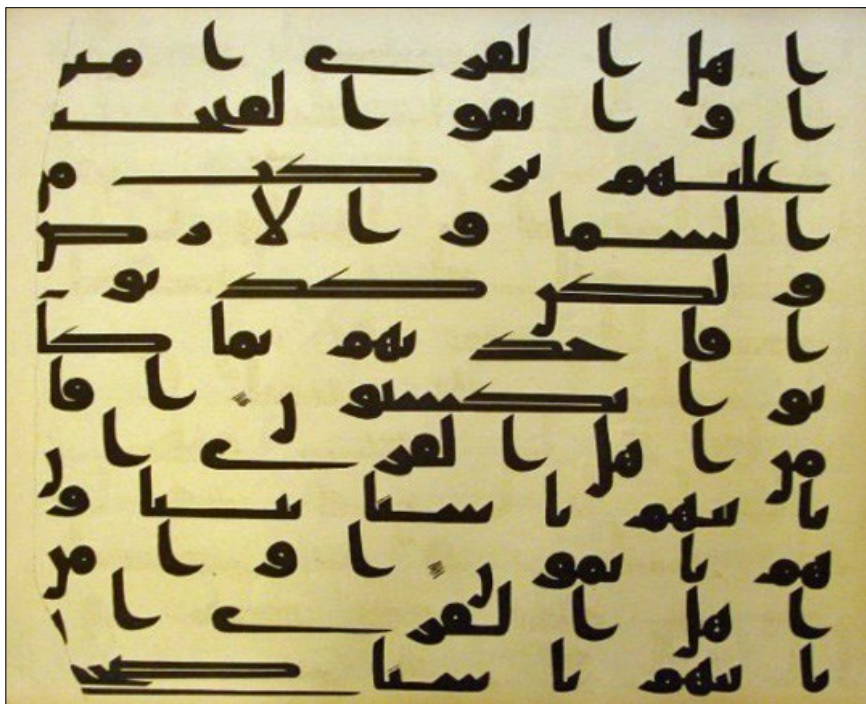 اهل القرى امنو
ا واتقوا لفتحنا
عليهم بركت من
السما والارض
ولكن كذبو
ا فاخذنهم بما كا
نوا يكسبون افا
من اهل القرى ان
ياتيهم باسنا بيتا و
هم نايمون اوامن
اهل القرى ا
ياتيهم باسنا ضحى